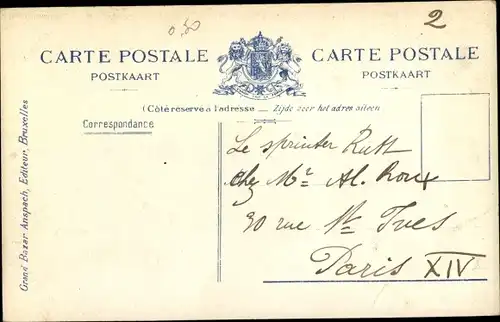 0.50
2
CARTE POSTALE
POSTKAART
CARTE POSTALE
POSTKAART
(Côté réservé à l'adresse — Zijde voor het adres alleen
Correspondance
Grand Bazar Anspach, Editeur, Bruxelles
Le sprinter Rutt
chez Mr. Al. Roux
30 rue St. Yves
Paris XIV